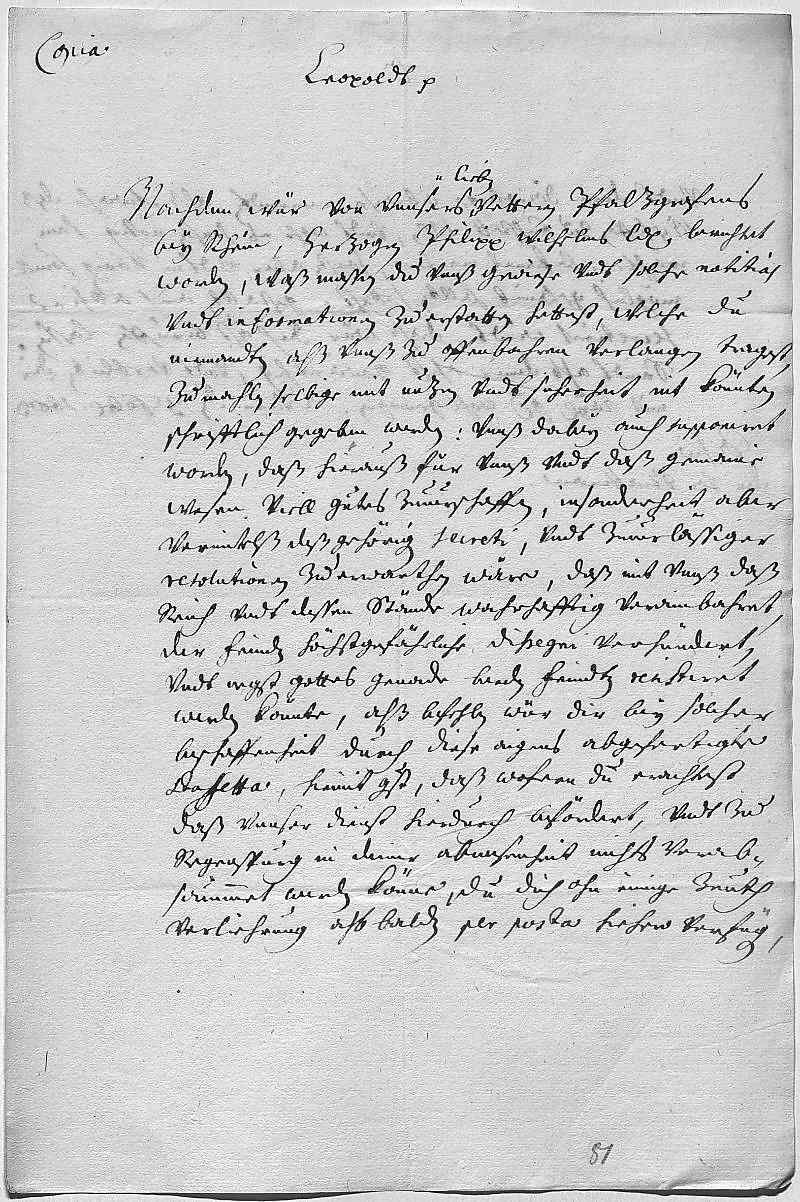 Copia.
Leopoldt p
liebs
Nachdem wür von Unsers Vettern Pfalzgrafens
bey Rhein, Herzogen Philipp Wilhelms Ldn. berichtet
worden, was massen du Unß gewiese Undt solche notitias
Undt informationen Zu erstatten hettest, welche du
niemandten alß Unß Zu offenbahren Verlangen tragest,
Zumahln selbige mit nuzen Undt sicherheit nit könten
schrifftlich gegeben werden: Unß dabey auch supponiret
worden, daß hierauß für Unß Undt daß gemaine
wesen Viell gutes Zuuerschaffen, insonderheit aber
Vermitelß deß gehörig secreti, Undt Zuuerlässiger
resolutionen Zu erwarthen wäre, daß mit Unß daß
Reich Undt dessen Stände wahrhafftig Verainbahret,
der feinden höchstgefährliche dissegni Verhündert,
Undt negst gottes genade beeden feindten resistiret
werden könnte, alß befehlen wür dir bey solcher
beschaffenheit durch diese aigens abgefertigte
Staffetta, hiemit gst, daß wofern du erachtest
daß Unser dienst hierdurch befördert, Undt Zu
Regenspurg in deiner abwesenheit nichts Verab-
säummet werden könne, du dich ohn einige Zeith
Verliehrung alß balden per posta hieher Verfüg,
81